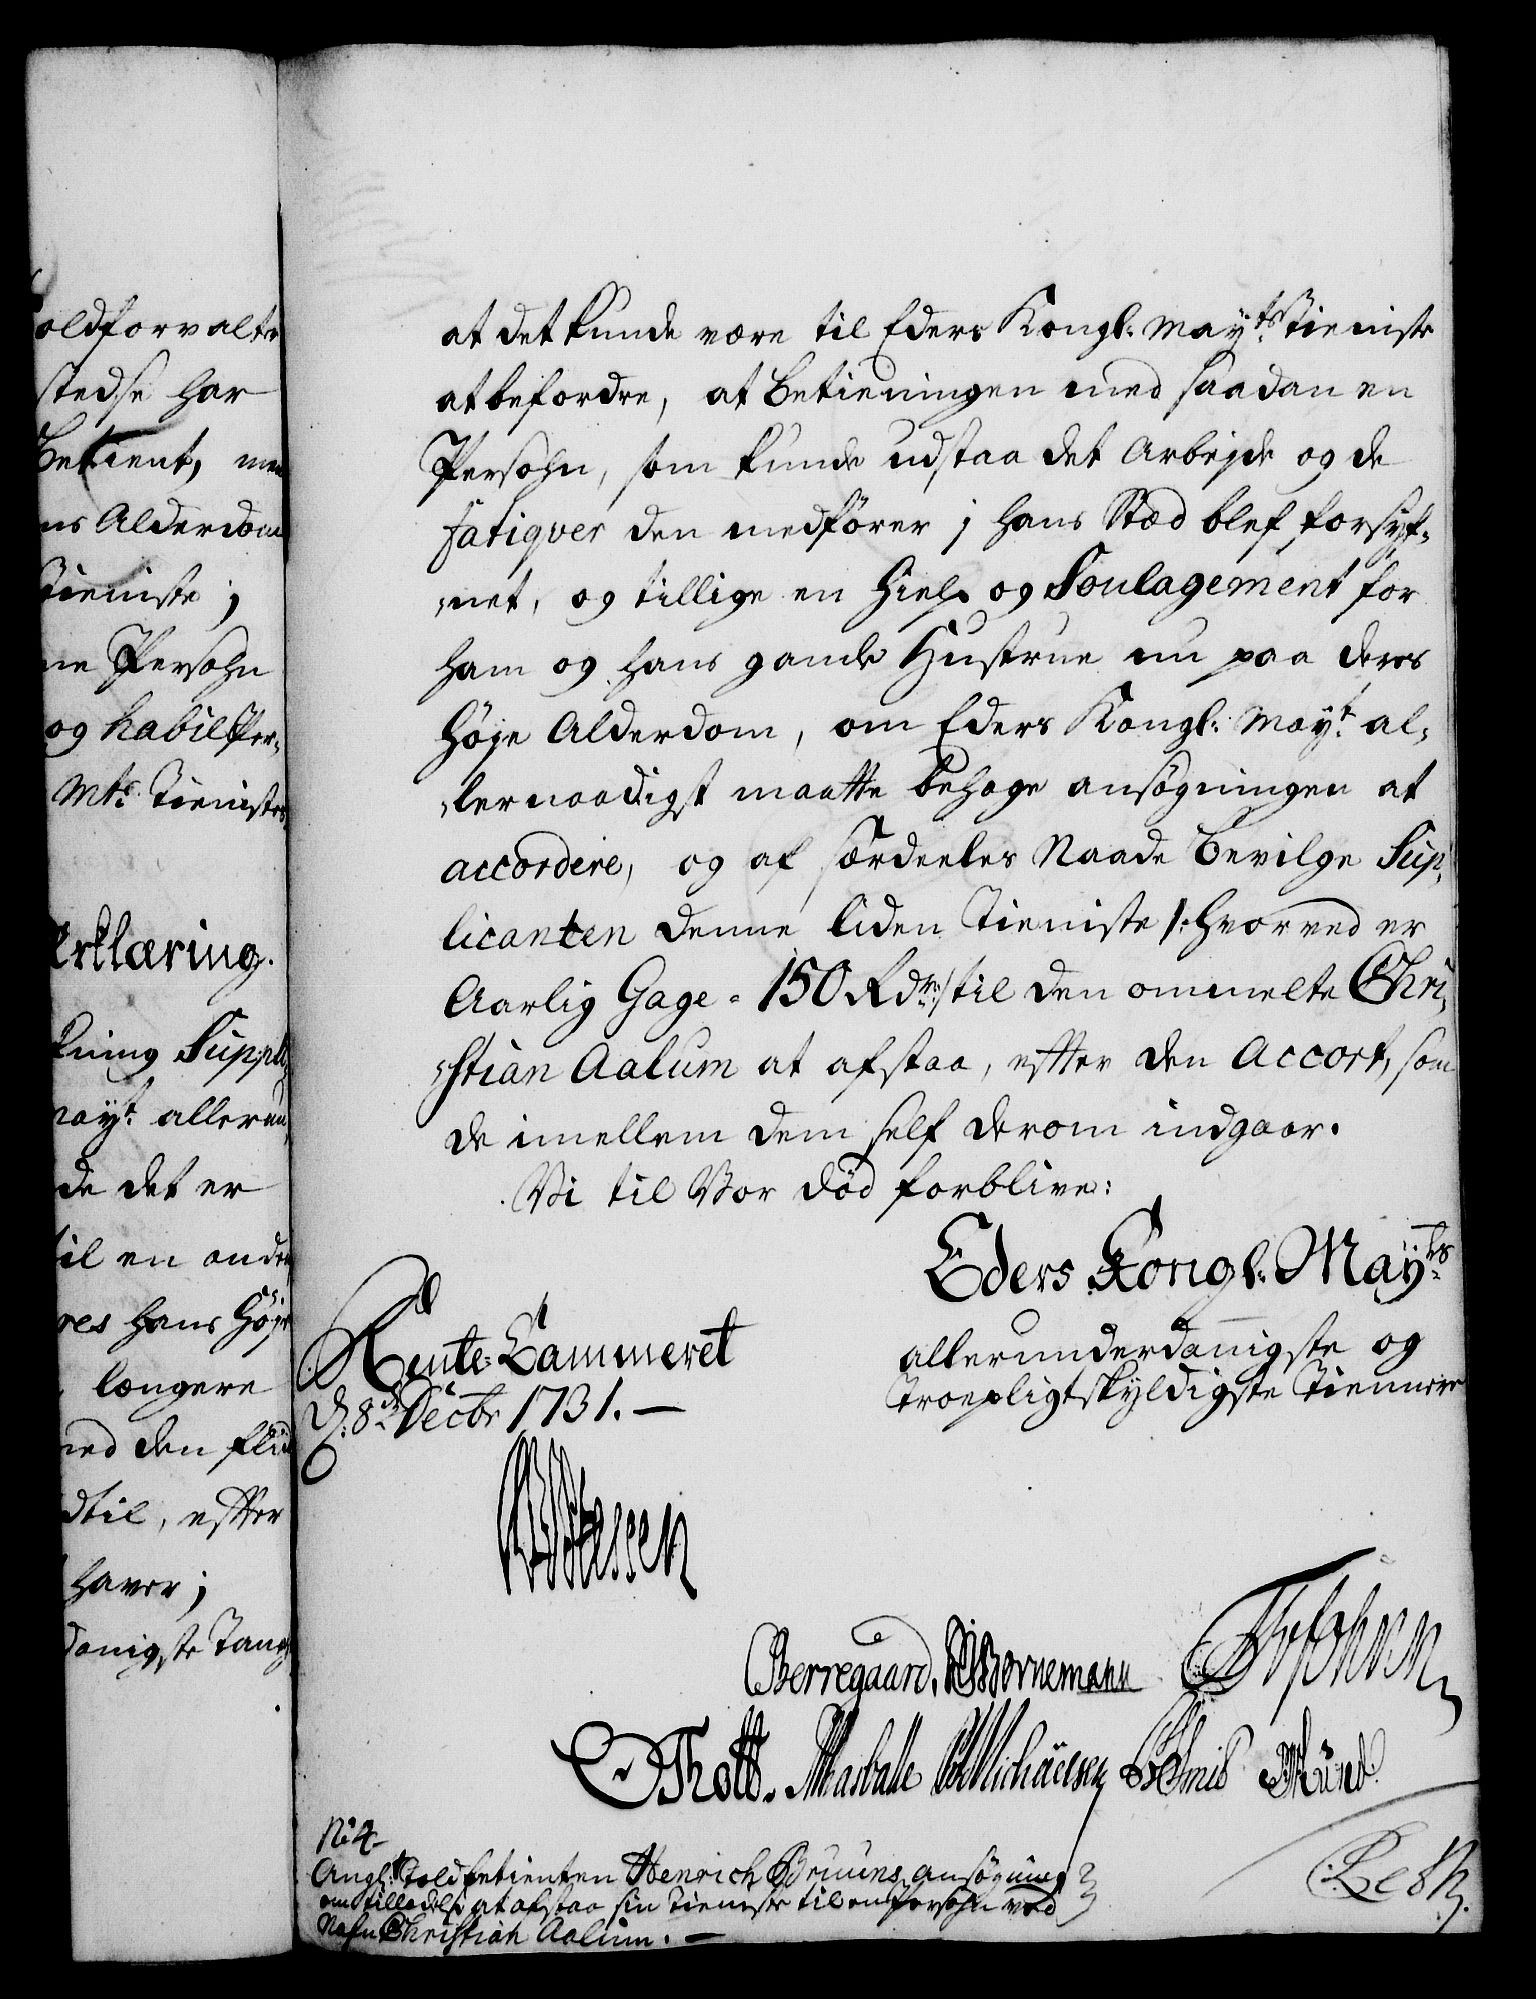 oldforvalter
stedse har
betient, men
ns Alderdom
Tieniste j
ne Persohn
og habil Per-
Mts Tienistes
Erklæring.
kning Suppli-
mayt allerun-
de det er
til en anden
res hans Høje
længere
med den fliid
dtil, efter
haver j
danigste Tanch
at det kunde være til Eders Kongl: Mayts Tieniste
at befordre, at betieningen med saadan en
Persohn, som kunde udstaa det Arbejde og de
fatiqver den medfører j hans Stæd blef forsyf-
net, og tillige en Hielp og Soulagement for
ham og hans gamle Hustrue nu paa deres
høje Alderdom, om Eders Kongl: Mayt al-
lernaadigst maatte behage ansøgningen at
accordere, og af særdeeles Naade bevilge Sup-
licanten denne liden Tieniste /: hvorved er
Aarlig Gage - 150 Rdr :/ til den ommelte Chri-
stian Aalum at afstaa, efter den Accort, som
de imellem dem self derom indgaar.
Vi til Vor Død forblive:
Eders Kongl: Mayts
allerunderdanigste og
Troepligtskyldigste Tiennere
Rente-Cammeret
d: 8de Decbr 1731. —
Berregaard. Bornemann
Thott. Michaelsen Smid Kund
No 4
Angl: Toldbetienten Henrich Bruuns ansøgning
om tilladelse at afstaa sin Tieneste til en Persohn ved
Nafn Christian Aalum. —